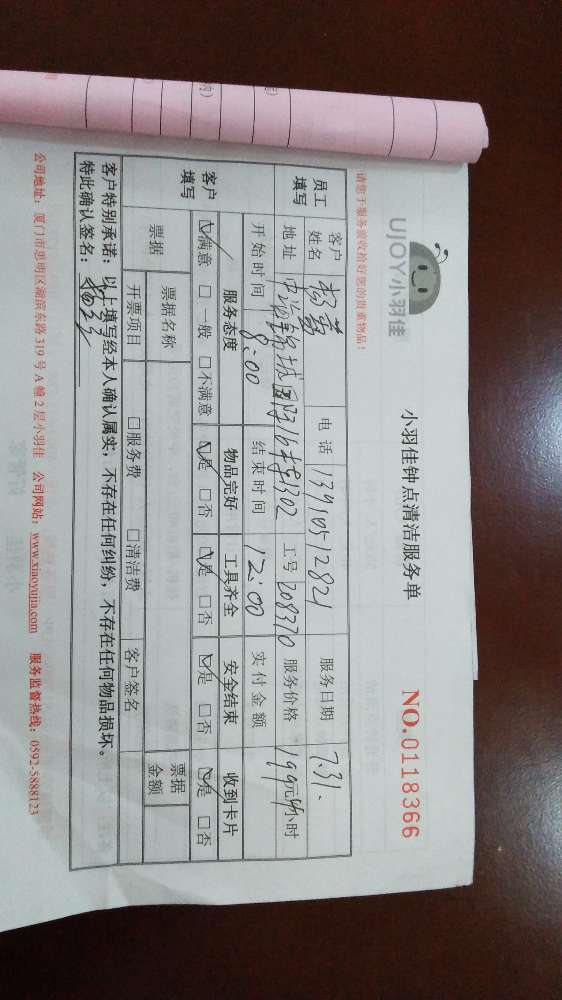 UJOY小羽佳
小羽佳钟点清洁服务单
NO.0118366
请您于服务前收拾好您的贵重物品!
员工填写 客户姓名 电话 13910512821 服务日期 7.31.
地址 16 1302 工号 208370 服务价格 199元4小时
开始时间 8:00 结束时间 12:00 实付金额
客户填写 服务态度 物品完好 工具齐全 安全结束 收到卡片
☑满意 □一般 □不满意 ☑是 □否 ☑是 □否 ☑是 □否 ☑是 □否
票据 票据名称 票据金额
开票项目 □服务费 □清洁费 客户签名
客户特别承诺:以上填写经本人确认属实,不存在任何纠纷,不存在任何物品损坏。
特此确认签名:
公司地址:厦门市思明区湖滨东路319号A幢2层小羽佳 公司网站:www.xiaoyujia.com 服务监督热线:0592-5888123